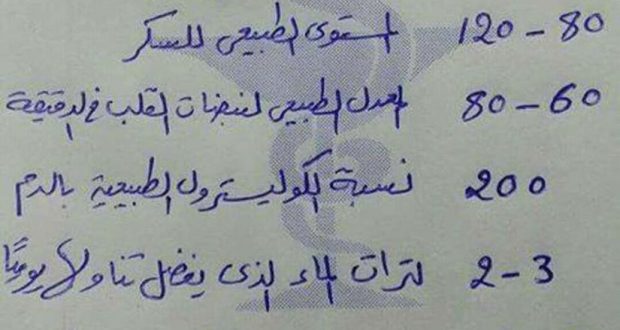 80 - 120 المستوى الطبيعى للسكر
60 - 80 المعدل الطبيعى لنبضات القلب فى الدقيقة
200 نسبة الكوليسترول الطبيعية بالدم
2 - 3 لترات الماء الذى يفضل تناولها يوميًا